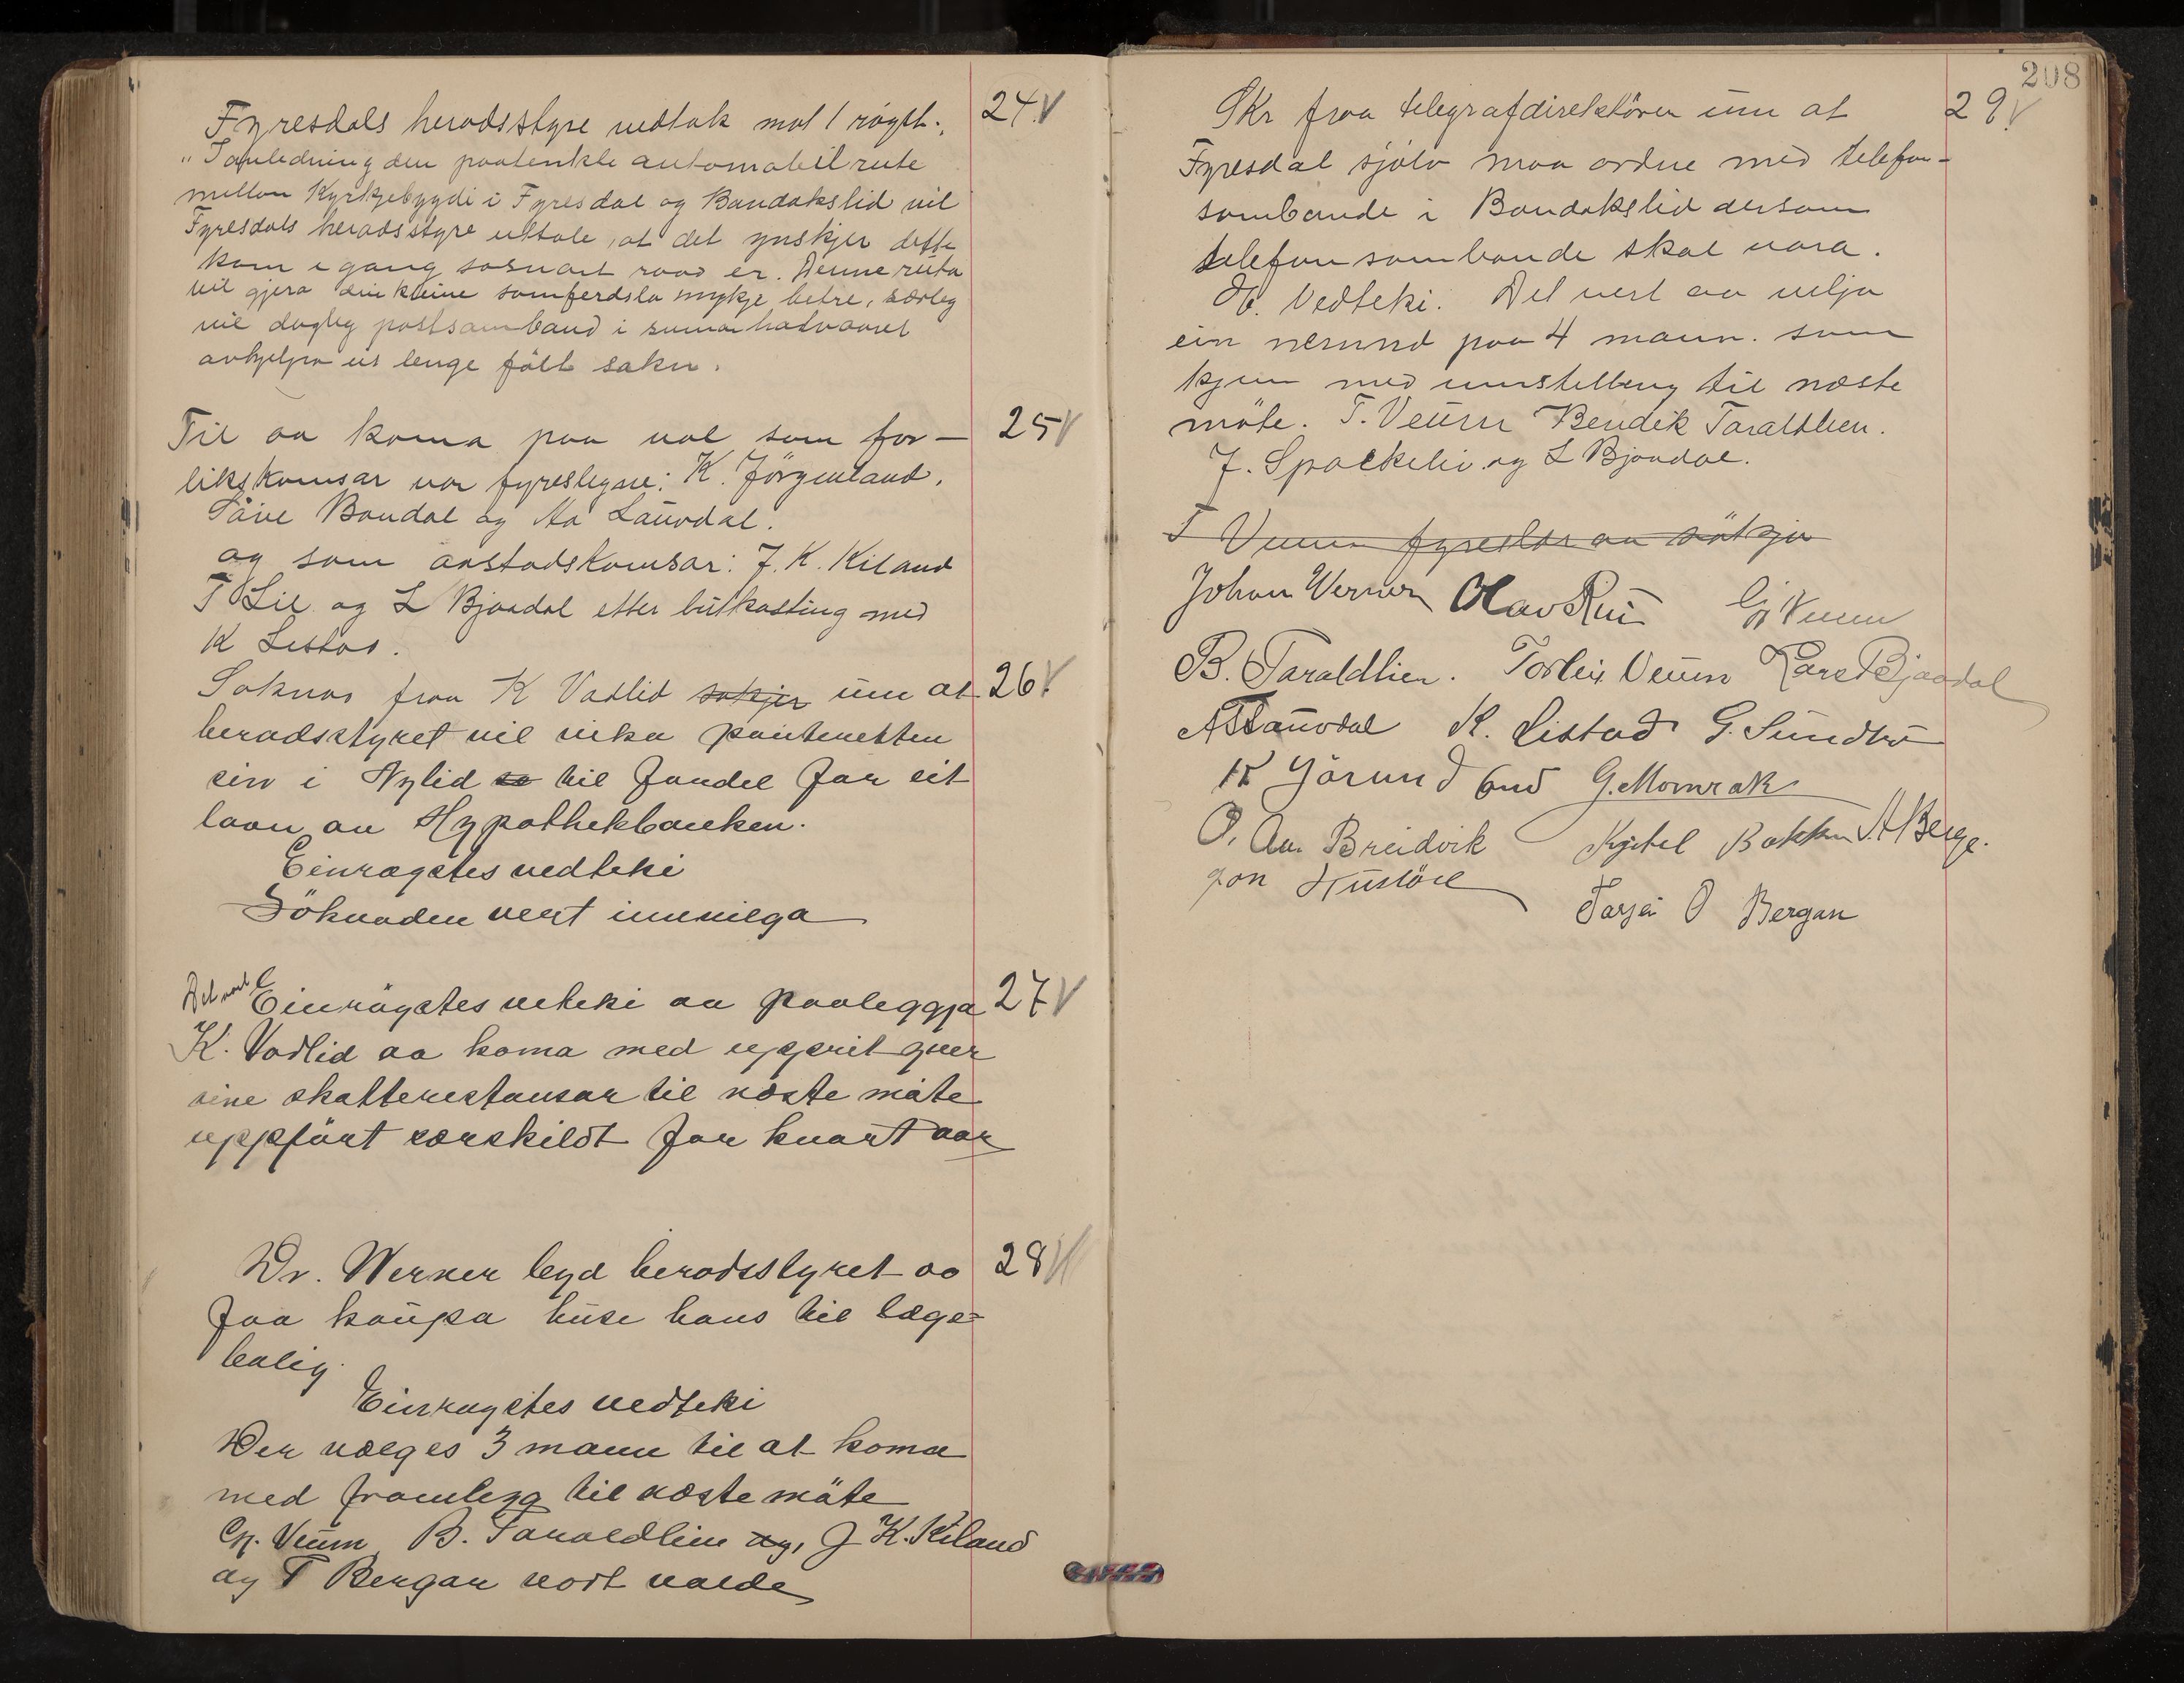 Fyresdals heradsstyre vedtok mot 1 røyst.,
24
"I anledning den paatenkte automobilrute
mellom Kyrkjebygdi i Fyresdal og Bandakslid vil
Fyresdals heradsstyre uttale, at det ynskjer dette
kom i gang sosnart raad er. Denne ruta
vil gjera samferdsla mykje betre, særleg
vil dagleg postsamband i sumarhalvaaret
avhjelpa eit lenge følt sakn.
Til aa koma paa val som for-
25
likskomsar var fyreslegne: K. Jörgenland,
Taive Bondal og Aa Lauvdal.
og som anstadskomsar: J. K. Kiland
T Lie og L Bjaadal etter lutkasting med
K Listad.
Soknad fraa K Vadlid sökjer um at
26
heradsstyret vil vika panteretten
sin i Nylid so til fordel for eit
laan av Hypothekbanken.
Einrøystes vedteki
Söknaden vert innvilga
Det vart
Einröystes veteki aa paaleggja
27
K. Vadlid aa koma med upprit yver
sine skatterestansar til næste möte
uppfört særskildt for kvart aar
Dr. Werner byd heradsstyret aa
28
faa kaupa huse hans til læge=
bolig.
Einröystes vedteki
Der vælges 3 mann til at koma
med framlegg til næste möte
Gj. Veum B. Taraldlien og, J K. Kiland
og T Bergan vort valde
208
Skr fraa telegrafdirektören um at
29
Fyresdal sjölv maa ordne med telefon-
sambande i Bandakslid dersom
telefonsambande skal vara.
Vedteki: Det vert aa velja
ein nemnd paa 4 mann. som
kjem med umstelling til næste
möte. T. Veum Bendik Taraldlien.
J. Spokkeli og L Bjaadal.
T Veum fyreslær aa sökja
Johan Werner Olav Rui Gj Veum
B. Taraldlien. Torleiv Veum Lars Bjaadal
A Lauvdal K. Listad G. Sundbö
K Jörundland G. Momrak
O. Aa. Breidvik Kjetel Bakken A Berge.
Jon Hustöil
Tarjei O Bergan